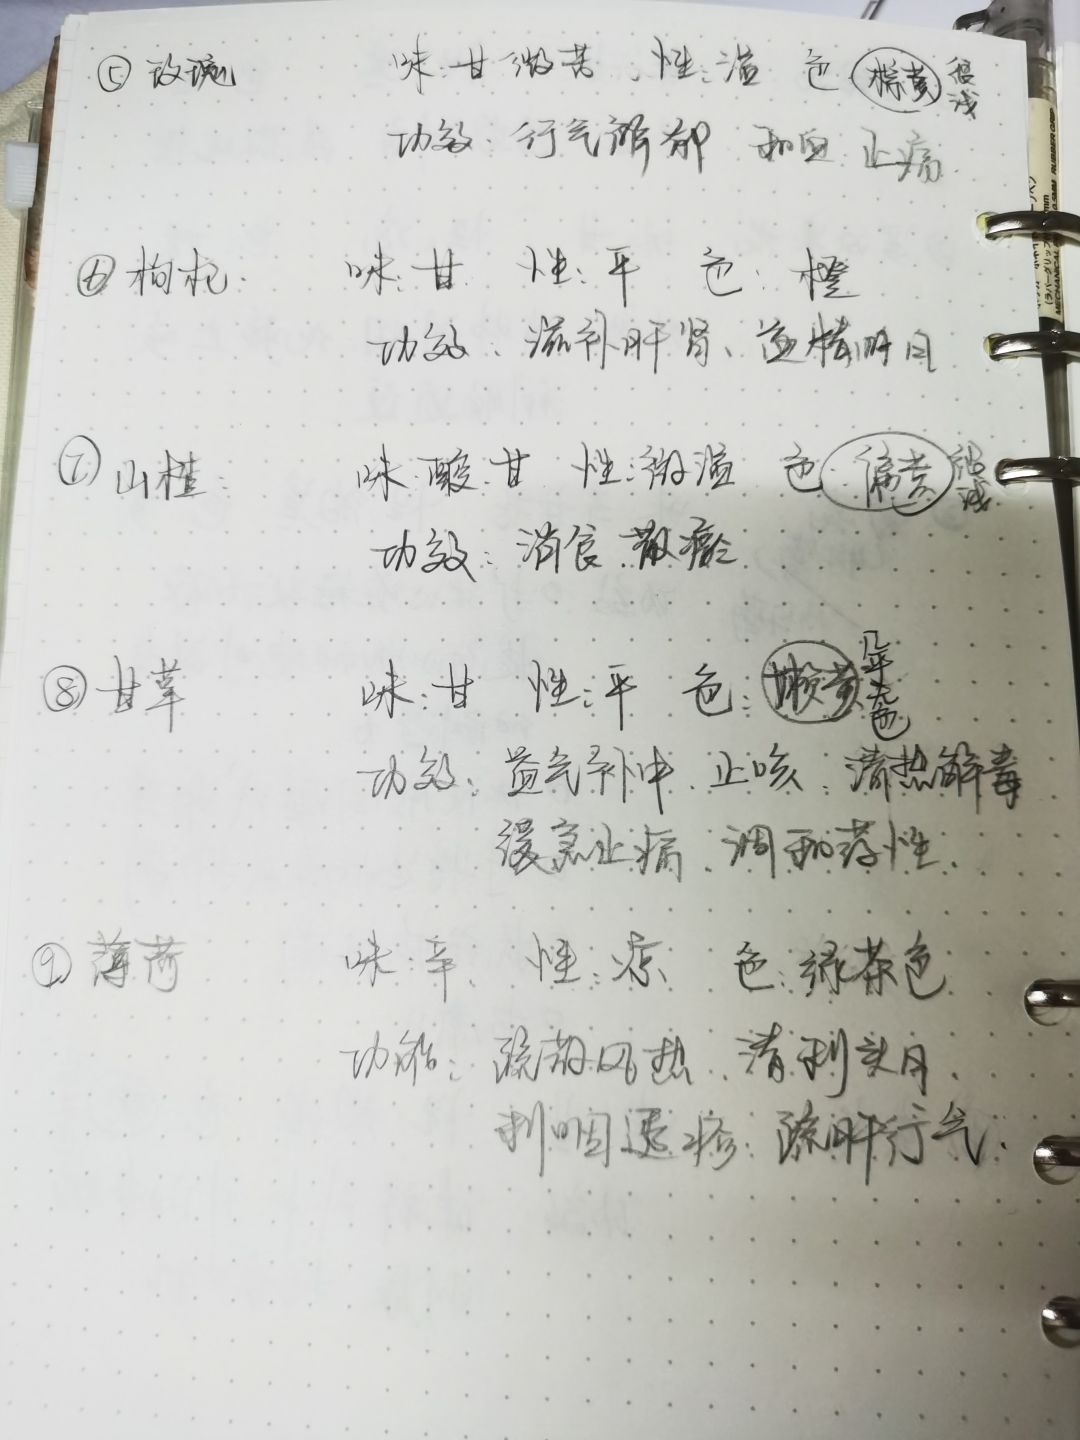 ⑤ 玫瑰 味:甘微苦 性:温 色 棕黄 很浅
功效:行气解郁 和血 止痛
⑥ 枸杞 味:甘 性:平 色:橙
功效、滋补肝肾、益精明目
⑦ 山楂: 味:酸.甘 性:微温 色 偏黄 很浅
功效:消食 散瘀
⑧ 甘草 味:甘 性:平 色:嫩黄 几乎无色
功效:益气补中、止咳、清热解毒
缓急止痛、调和药性.
⑨ 薄荷 味:辛、性:凉 色:绿茶色
功能:疏散风热、清利头目、
利咽透疹、疏肝行气.
RUBBER GRIP
0.5MM
MECHANICAL